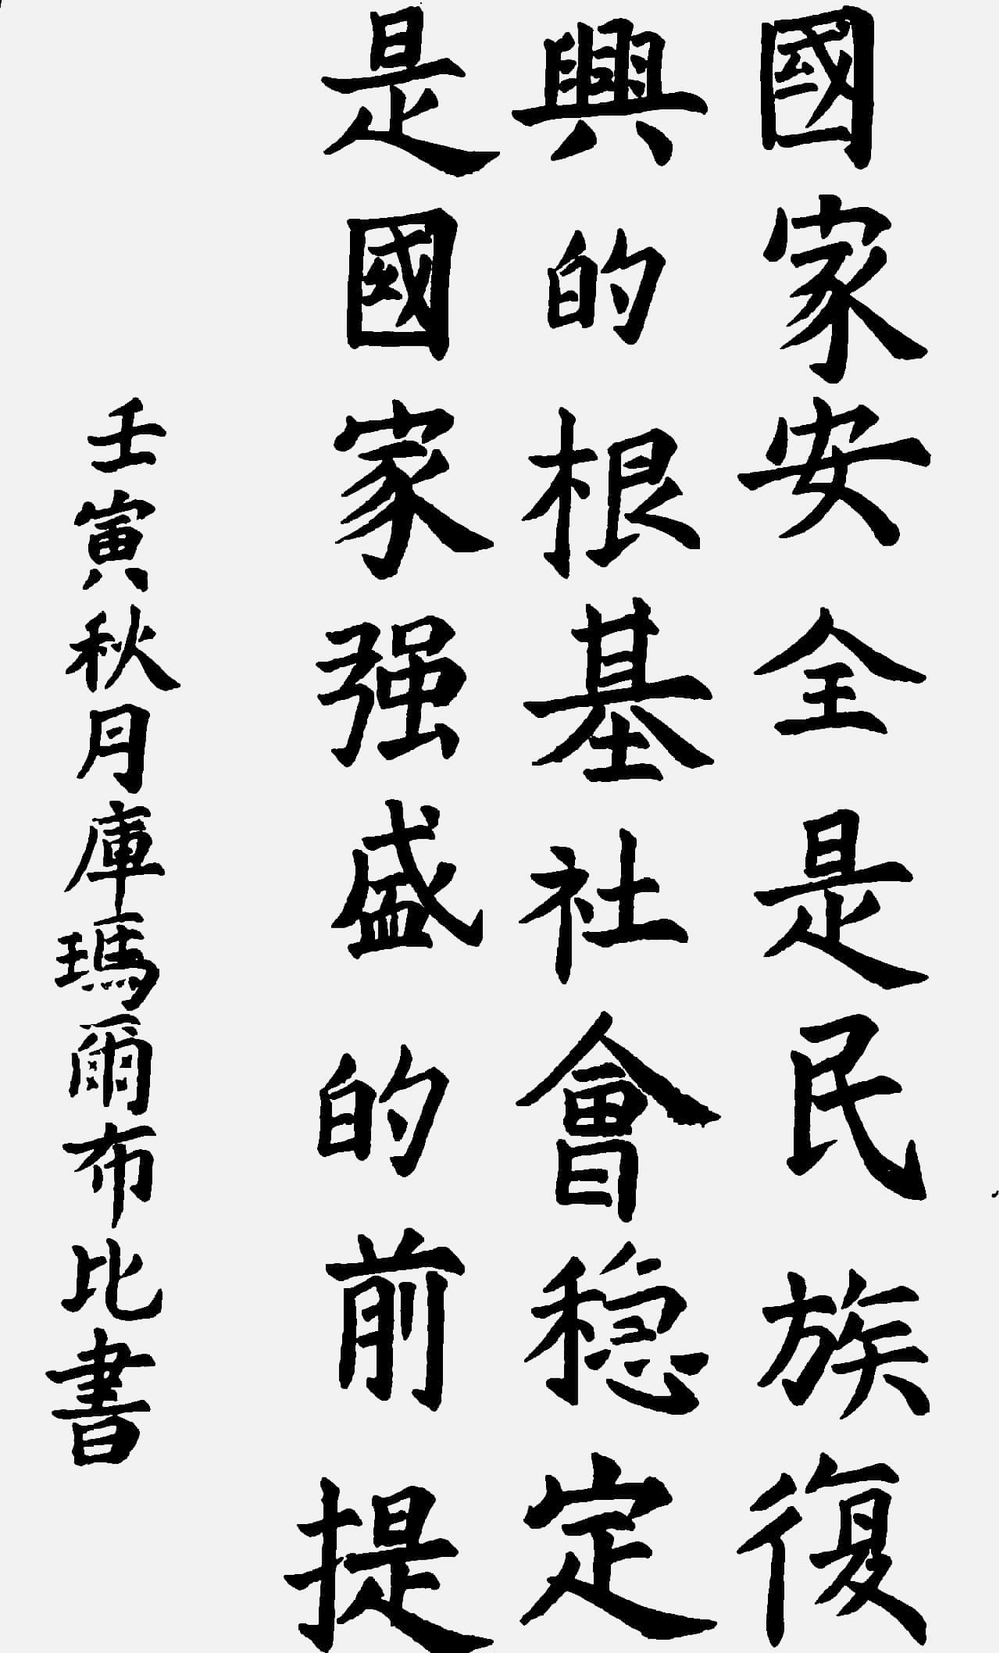 國家安全是民族復
興的根基社會穏定
是國家强盛的前提
壬寅秋月庫瑪爾布比書